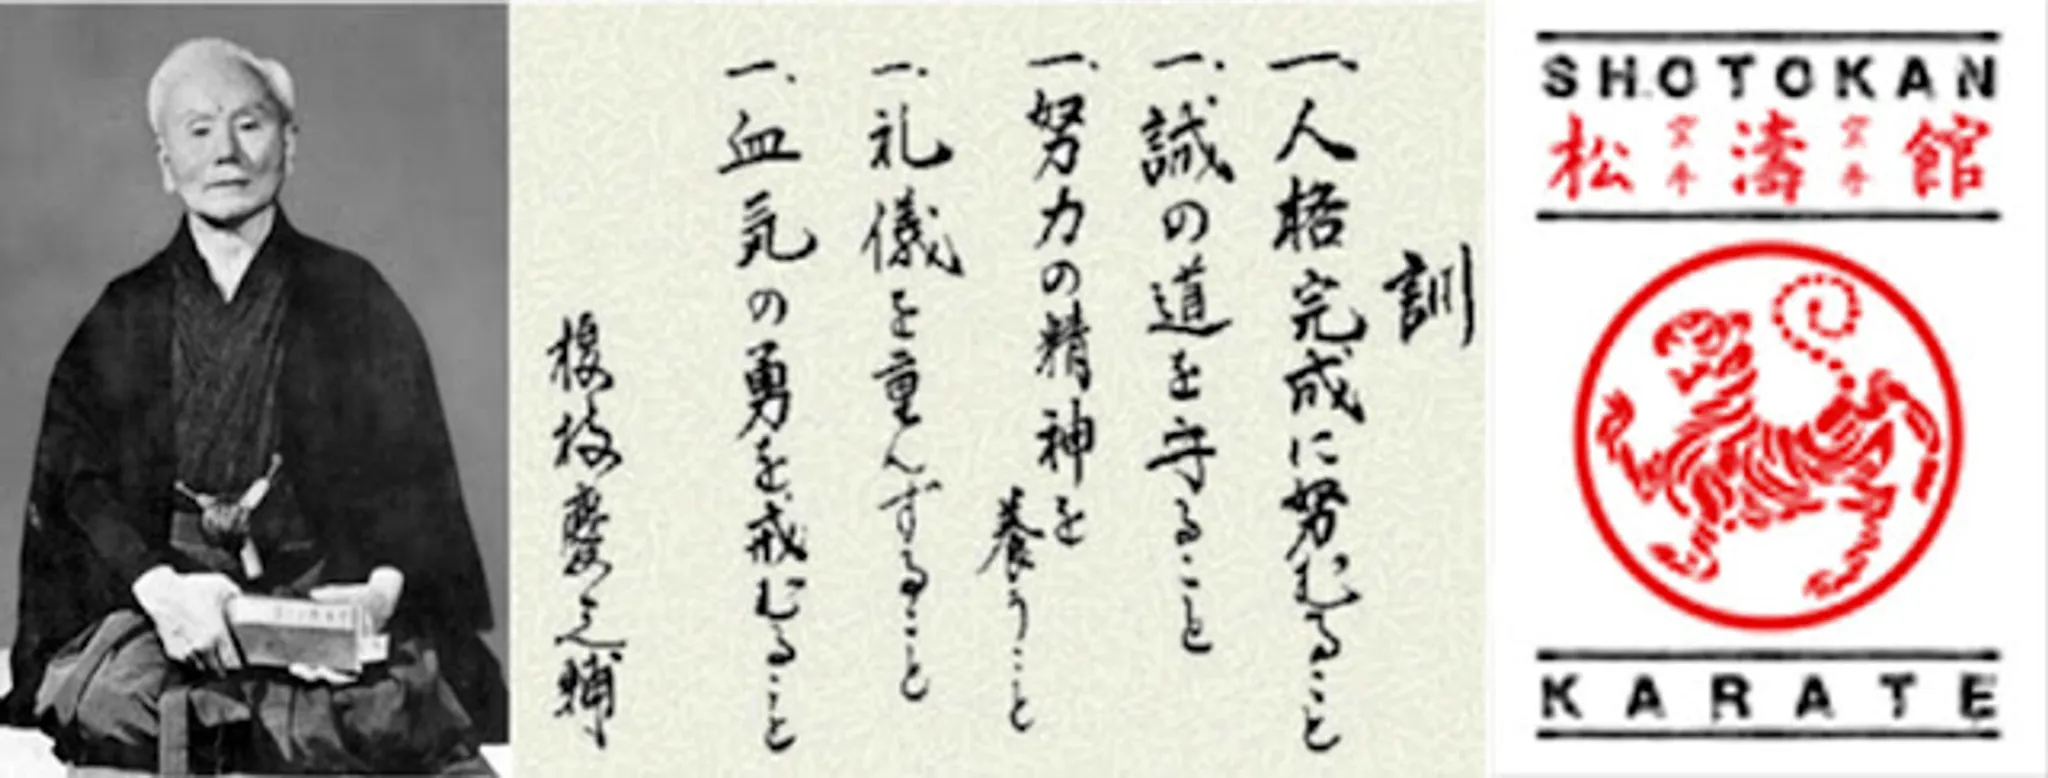 訓
一、人格完成に努むること
一、誠の道を守ること
一、努力の精神を
養うこと
一、礼儀を重んずること
一、血気の勇を戒むること
榎枝慶之輔
SHOTOKAN
松 空手 濤 空手 館
KARATE